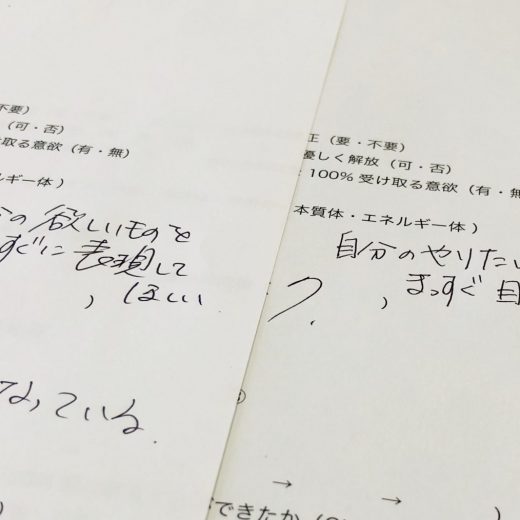 不要)
(可・否)
け取る意欲(有・無)
ルギー体)
の欲しいものを
すぐに表現して
, ほしい
なっている.
正(要・不要)
優しく解放(可・否)
: 100% 受け取る意欲(有・無
本質体・エネルギー体)
自分のやりたい
まっすぐ 自
フ. ,
→ →
できたか(
)